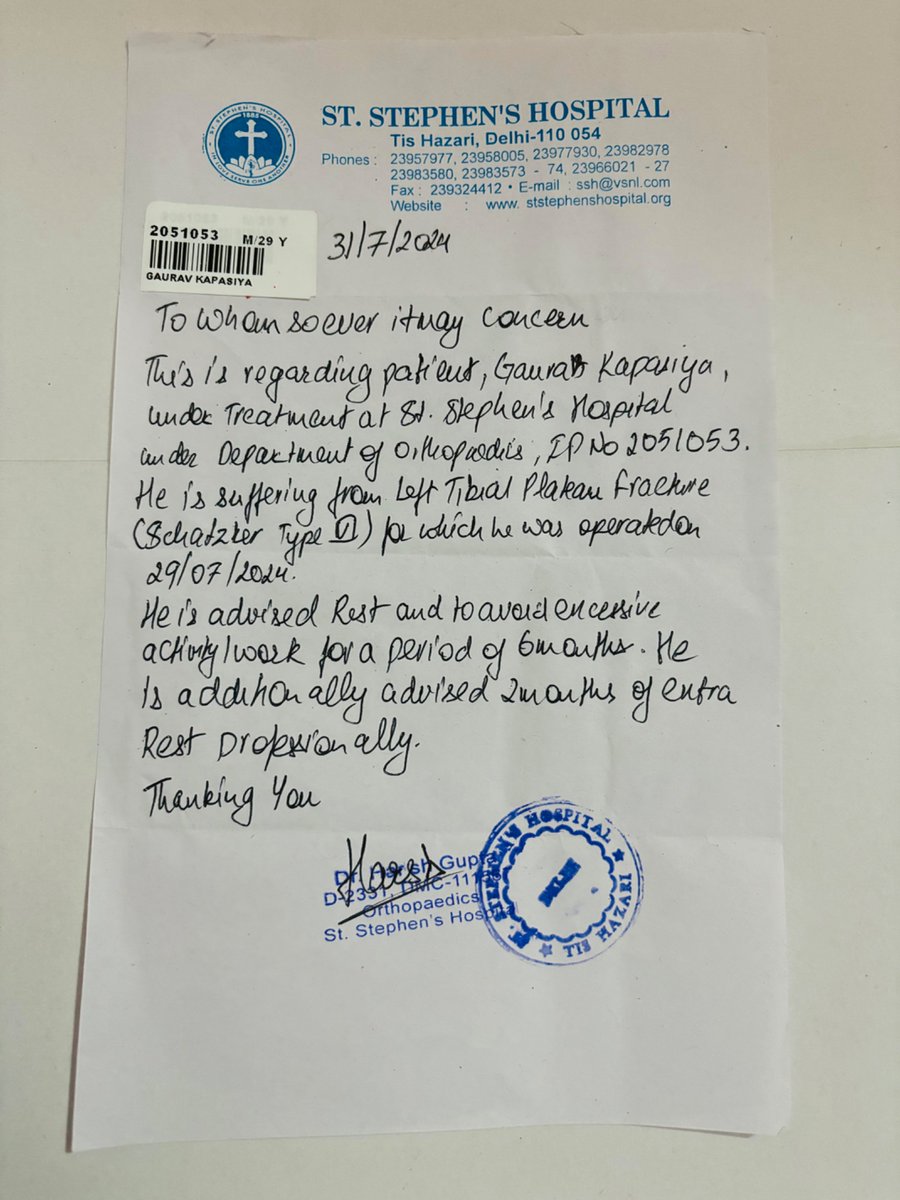 ST. STEPHEN'S HOSPITAL
Tis Hazari, Delhi-110 054
Phones : 23957977, 23958005, 23977930, 23982978
23983580, 23983573 - 74, 23966021 - 27
Fax : 239324412 • E-mail : ssh@vsnl.com
Website : www. ststephenshospital.org
ST STEPHEN'S HOSPITAL
1885
IN LOVE SERVE ONE ANOTHER
2051053 M/29 Y
GAURAV KAPASIYA
31/7/2024
To Whom so ever it may Concern
This is regarding patient, Gaurav Kapasiya,
under Treatment at St. Stephen's Hospital
under Department of Orthopaedics, IP No 2051053.
He is suffering from Left Tibial Plateau Fracture
(Schatzker Type VI) for which he was operated on
29/07/2024.
He is advised Rest and to avoid excessive
activity/work for a period of 6 months. He
Is additionally advised 2 months of extra
Rest Professionally.
Thanking You
Harsh
Dr. Harsh Gupta
Orthopaedics
St. Stephen's Hospital
ST. STEPHEN'S HOSPITAL
DELHI
TIS HAZARI